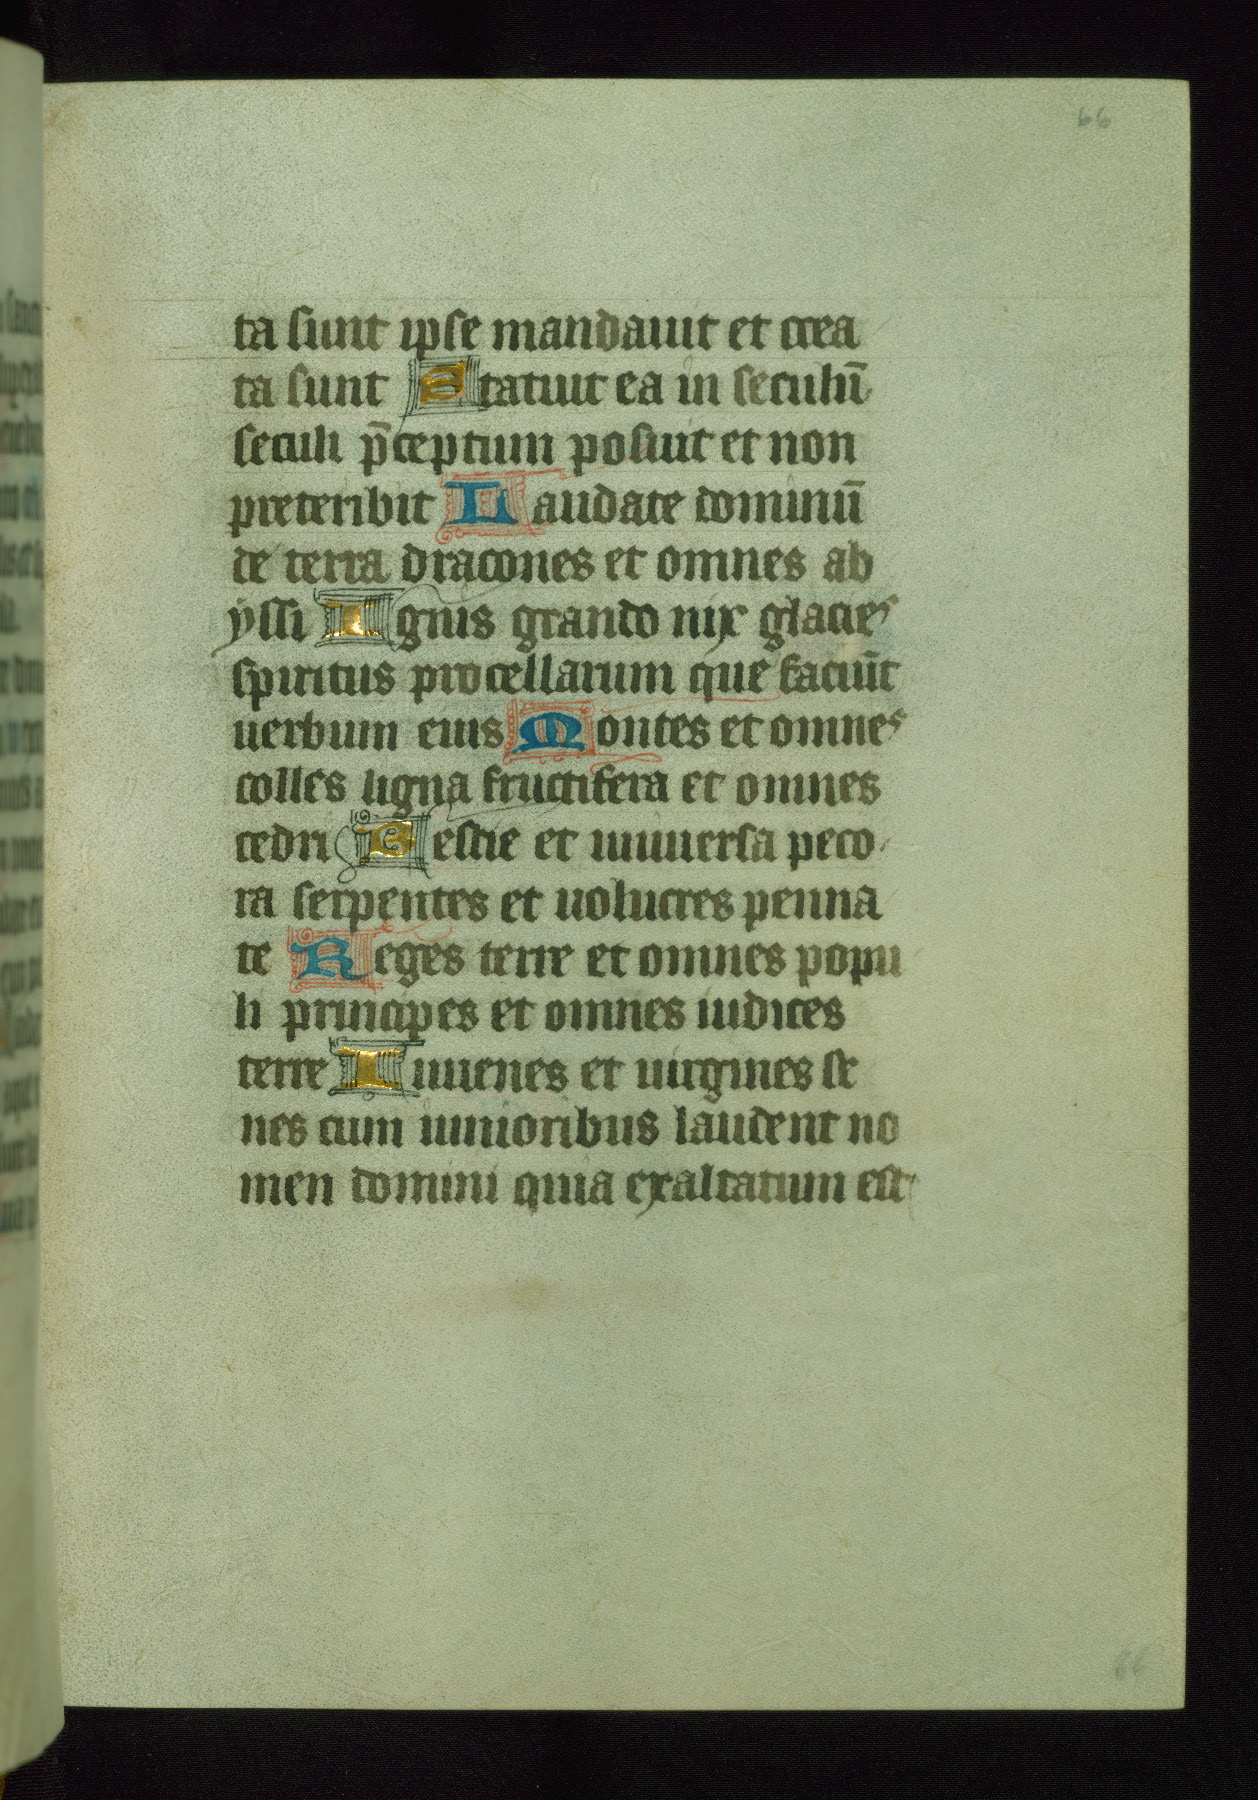 66
ta sunt ipse mandauit et crea
ta sunt Statuit ea in seculū
seculi p̄ceptum posuit et non
preteribit Laudate dominū
de terra dracones et omnes ab
yssi Ignis grando nix glacies
spiritus procellarum que faciūt
uerbum eius Montes et omnes
colles ligna fructifera et omnes
cedri Bestie et uniuersa peco
ra serpentes et uolucres penna
te Reges terre et omnes popu
li principes et omnes iudices
terre Iuuenes et uirgines se
nes cum iunioribus laudent no
men domini quia exaltatum est